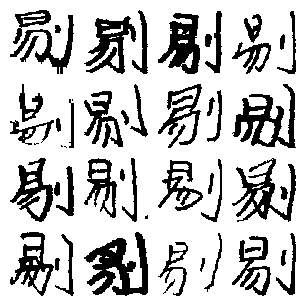 剔剔剔剔
剔剔剔剔
剔剔剔剔
剔剔剔剔